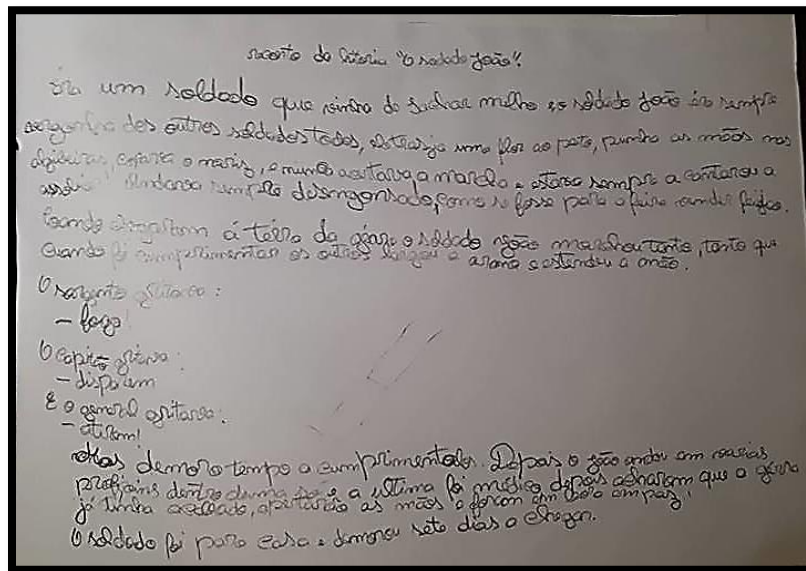 reconto da istoria "O soldado João".
Era um soldado que vinha de sachar milho e o soldado João era sempre
vergonha dos outros soldados todos, ele trazia uma flor ao peito, punha as mãos nas
algibeiras, coçava o nariz, e nunca acertava a marcha e estava sempre a cantarou a
assobiar. Andava sempre desengonsado, como se fosse para a feira vender feijão.
Coando chegaram á terra da gerra o soldado João marchou tanto, tanto que
cuando foi cumprimentar os outros largou a arma e estendeu a mão.
O sargento gritava:
- fogo!
O capitão gritava:
- disparem
E o general gritava:
- atirem!
Mas demoro tempo a cumprimentalos. Depois o João andou em vários
dentro duma e a ultima foi médico depois acharam que a gerra
já tinha acabado, apertarão as mãos e foram em bora em paz.
O soldado foi para casa e demorou sete dias a chegar.